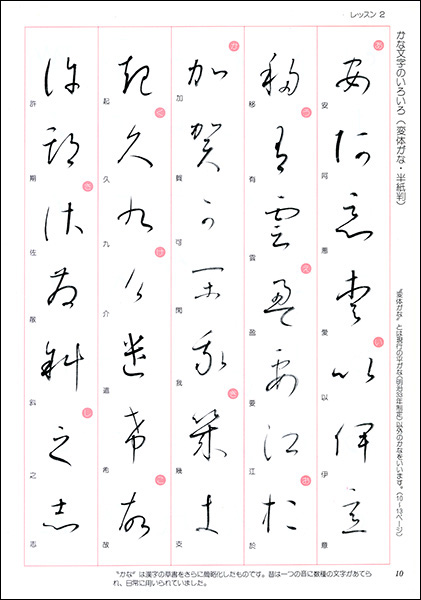 レッスン 2
かな文字のいろいろ（変体がな・半紙判）
"変体がな"とは現行の平がな(明治33年制定)以外のかなをいいます。(10〜13ページ)
あ 安 阿 悪 愛 い 以 伊 意
移 う 有 雲 え 盈 要 江 お 於
か 加 賀 可 閑 我 き 幾 支
起 く 久 九 け 介 遣 希 こ 故
許 期 さ 佐 散 斜 し 之 志
"かな"は漢字の草書をさらに簡略化したものです。昔は一つの音に数種の文字があてら
れ、日常に用いられていました。
10